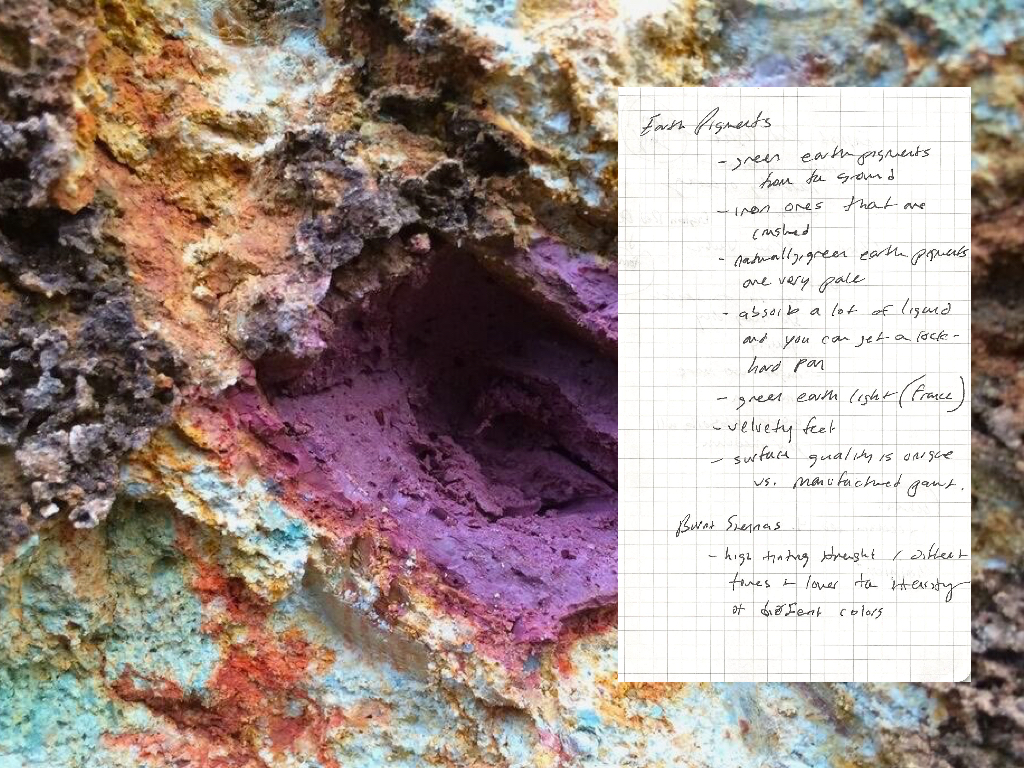 Earth Pigments
- green earth pigments
from the ground
- iron ones that are
crushed
- naturally green earth pigments
are very pale
- absorb a lot of liquid
and you can get a rock-
hard pan
- green earth light (france)
- velvety feel
- surface quality is unique
vs. manufactured paint.
Burnt Siennas
- high tinting strenght / different
tones + lower the intensity
of different colors